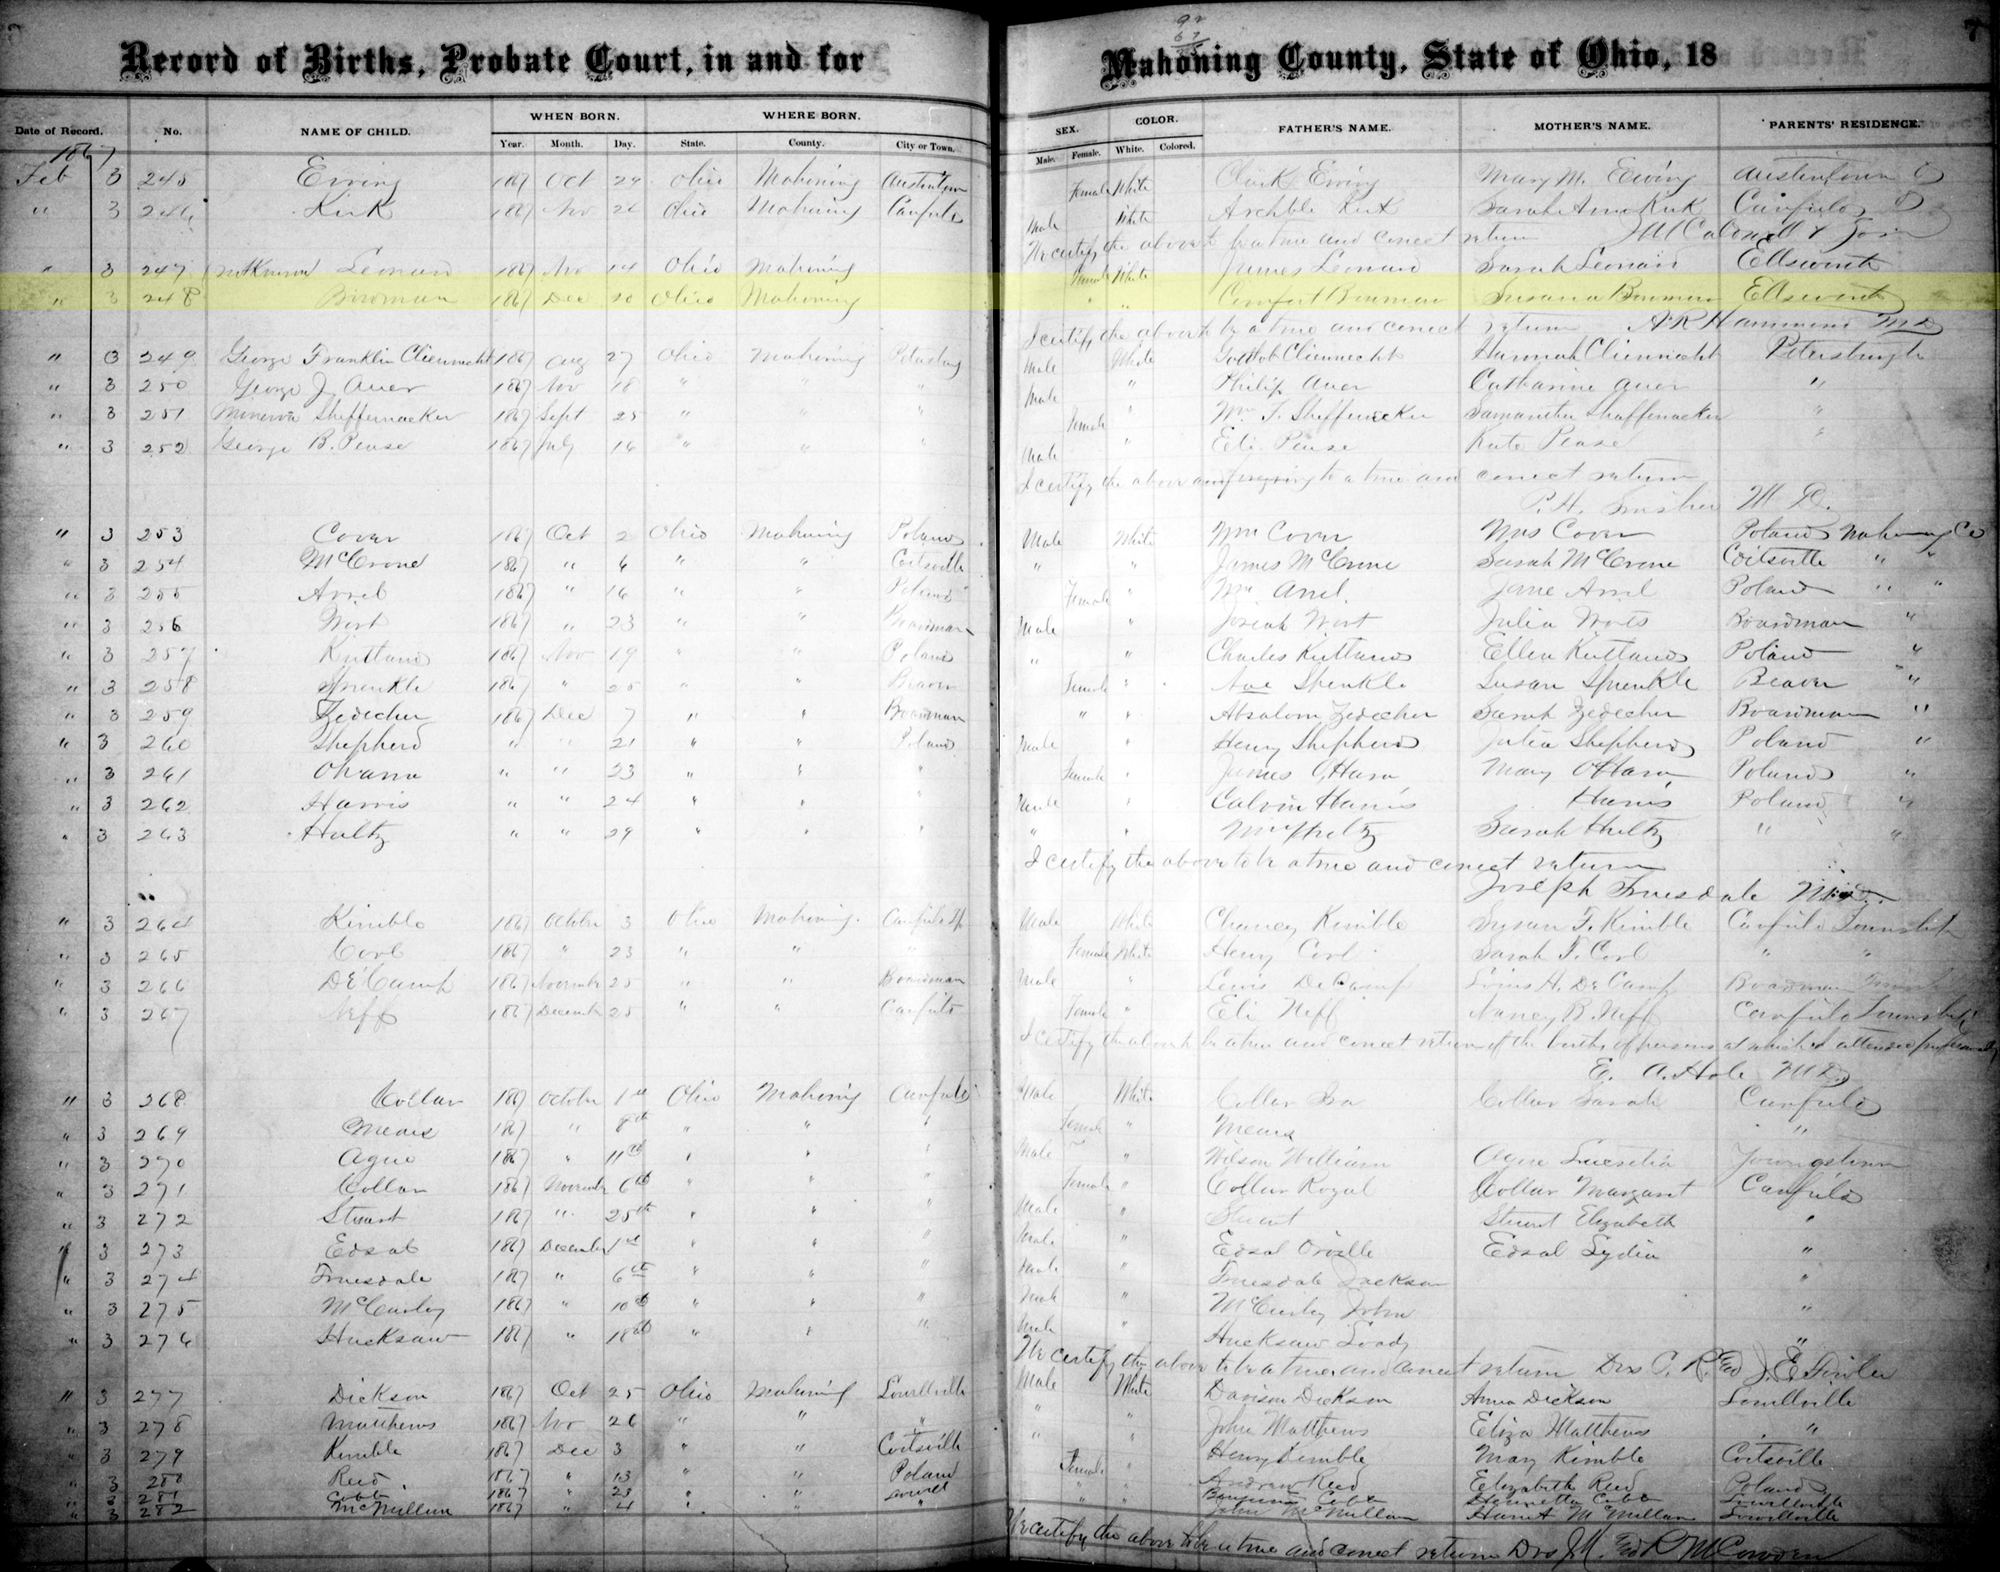 Record of Births, Probate Court, in and for Mahoning County, State of Ohio, 18
7
Date of Record. No. NAME OF CHILD. WHEN BORN. WHERE BORN. SEX. COLOR. FATHER'S NAME. MOTHER'S NAME. PARENTS' RESIDENCE.
Year. Month. Day. State. County. City or Town. Male. Female. White. Colored.
1867
Feb 3 245 Ewing 1867 Oct 24 Ohio Mahoning Austintown Female White Ewing Mary M. Ewing Austintown
" 3 246 Kirk 1867 Nov 26 Ohio Mahoning Canfield Male White Archble Kirk Sarah Ann Kirk Canfield
We certify the above to be a true and correct return
" 3 247 Leonard 1867 Nov 14 Ohio Mahoning Female White James Leonard Sarah Leonard Ellsworth
" 3 248 Bowman 1867 Dec 20 Ohio Mahoning " " Comfort Bowman Susana Bowman Ellsworth
I certify the above to be a true and correct return A R Hammond M D
" 3 249 George Franklin Cliennecht 1867 Aug 27 Ohio Mahoning Petersburg Male White Gottlob Cliennecht Hannah Cliennecht Petersburgh
" 3 250 George J. Auer 1867 Nov 18 " " " Male " Philip Auer Catharine Auer "
" 3 251 Minerva Sheffemacker 1867 Sept 25 " " " Female " Wm Sheffemacker Samantha Shaffemacker "
" 3 252 George B. Pease 1867 July 16 " " " Male " Eli Pease Kate Pease "
I certify the above and foregoing to a true and correct return
P. H. M D.
" 3 253 Cover 1867 Oct 2 Ohio Mahoning Poland Male White Wm Cover Mrs Cover Poland Mahoning Co
" 3 254 McCrone 1867 " 6 " " Coitsville " " James McCrone Sarah McCrone Coitsville " "
" 3 255 Arrel 1867 " 16 " " Poland Female " Wm Arrel Jane Arrel Poland " "
" 3 256 Wirt 1867 " 23 " " Boardman Male " Josiah Wirt Julia Boardman "
" 3 257 Kirtland 1867 Nov 19 " " Poland " " Charles Kirtland Ellen Kirtland Poland "
" 3 258 Sprenkle 1867 " 25 " " Beaver Female " Sprenkle Susan Sprenkle Beaver "
" 3 259 Zedecher 1867 Dec 7 " " Boardman " " Absalom Zedecher Sarah Zedecher Boardman "
" 3 260 Shepherd " " 21 " " Poland Male " Henry Shepherd Julia Shepherd Poland "
" 3 261 Ohara " " 23 " " " Female " James O Hara Mary O Hara Poland "
" 3 262 Harris " " 24 " " " Male " Calvin Harris Harris Poland "
" 3 263 Hultz " " 29 " " " " " Hultz Sarah Hultz " "
I certify the above to be a true and correct return
Joseph Truesdale M.D.
" 3 264 Kimble 1867 October 3 Ohio Mahoning Canfield Tp Male White Chancy Kimble Susan F. Kimble Canfield Township
" 3 265 Corl 1867 " 23 " " " Female White Henry Corl Sarah F. Corl " "
" 3 266 DeCamp 1867 November 25 " " Boardman Male " Lewis DeCamp H. DeCamp Boardman
" 3 267 Neff 1867 December 25 " " Canfield Female " Eli Neff Nancy B. Neff Canfield Township
I certify the above to be a true and correct return of the births of persons at which I attended professionally
E. A. Hole M D
" 3 268 Collar 1867 October 1st Ohio Mahoning Canfield Male White Collar Ira Collar Sarah Canfield
" 3 269 Mears 1867 " 8th " " " Female " Mears "
" 3 270 Ague 1867 " 11th " " " Male " Wilson William Ague Lucretia Youngstown
" 3 271 Collar 1867 November 6th " " " Female " Collar Royal Collar Margaret Canfield
" 3 272 Stuart 1867 " 25th " " " Male " Stuart Stuart Elizabeth "
" 3 273 Edsal 1867 December 1st " " " Male " Edsal Orville Edsal Lydia "
" 3 274 Truesdale 1867 " 6th " " " Male " Truesdale Jackson "
" 3 275 McCurley 1867 " 10th " " " Male " McCurley John "
" 3 276 Hucksaw 1867 " 18th " " " Male " Hucksaw "
We certify the above to be a true and correct return Drs
" 3 277 Dickson 1867 Oct 25 Ohio Mahoning Lowellville Male White Davison Dickson Anna Dickson Lowellville
" 3 278 Matthews 1867 Nov 26 " " " " " John Matthews Eliza Matthews "
" 3 279 Kimble 1867 Dec 3 " " Coitsville " " Henry Kimble May Kimble Coitsville
" 3 280 Reed 1867 " 13 " " Poland Female " Andrew Reed Elizabeth Reed Poland
" 3 281 Cobb 1867 " 23 " " Lowell " " Cobb Henrietta Cobb Lowellville
" 3 282 McMillen 1867 " 4 " " " John McMillan Harriet McMillan Lowellville
We certify the above to be a true and correct return Drs McCowden